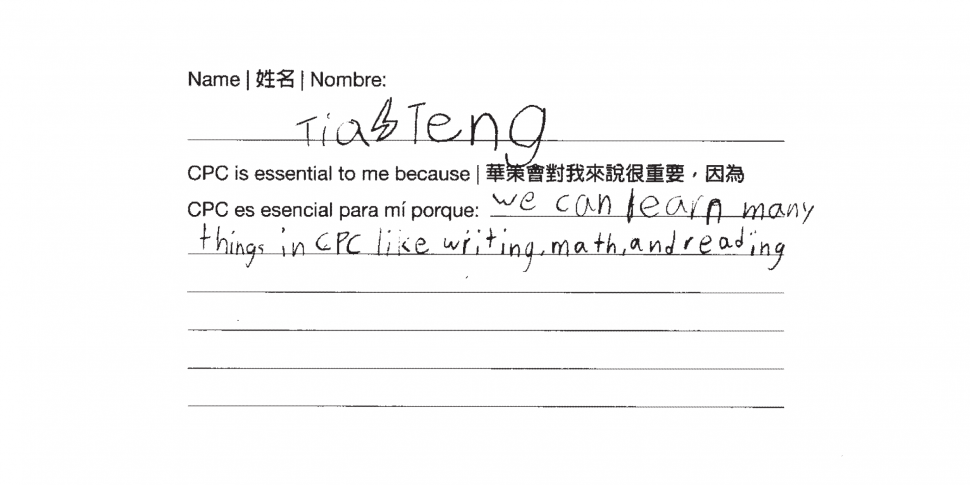 Name | 姓名 | Nombre:
Tia Teng
CPC is essential to me because | 華策會對我來說很重要，因為
CPC es esencial para mí porque: we can learn many
things in CPC like writing, math, and reading